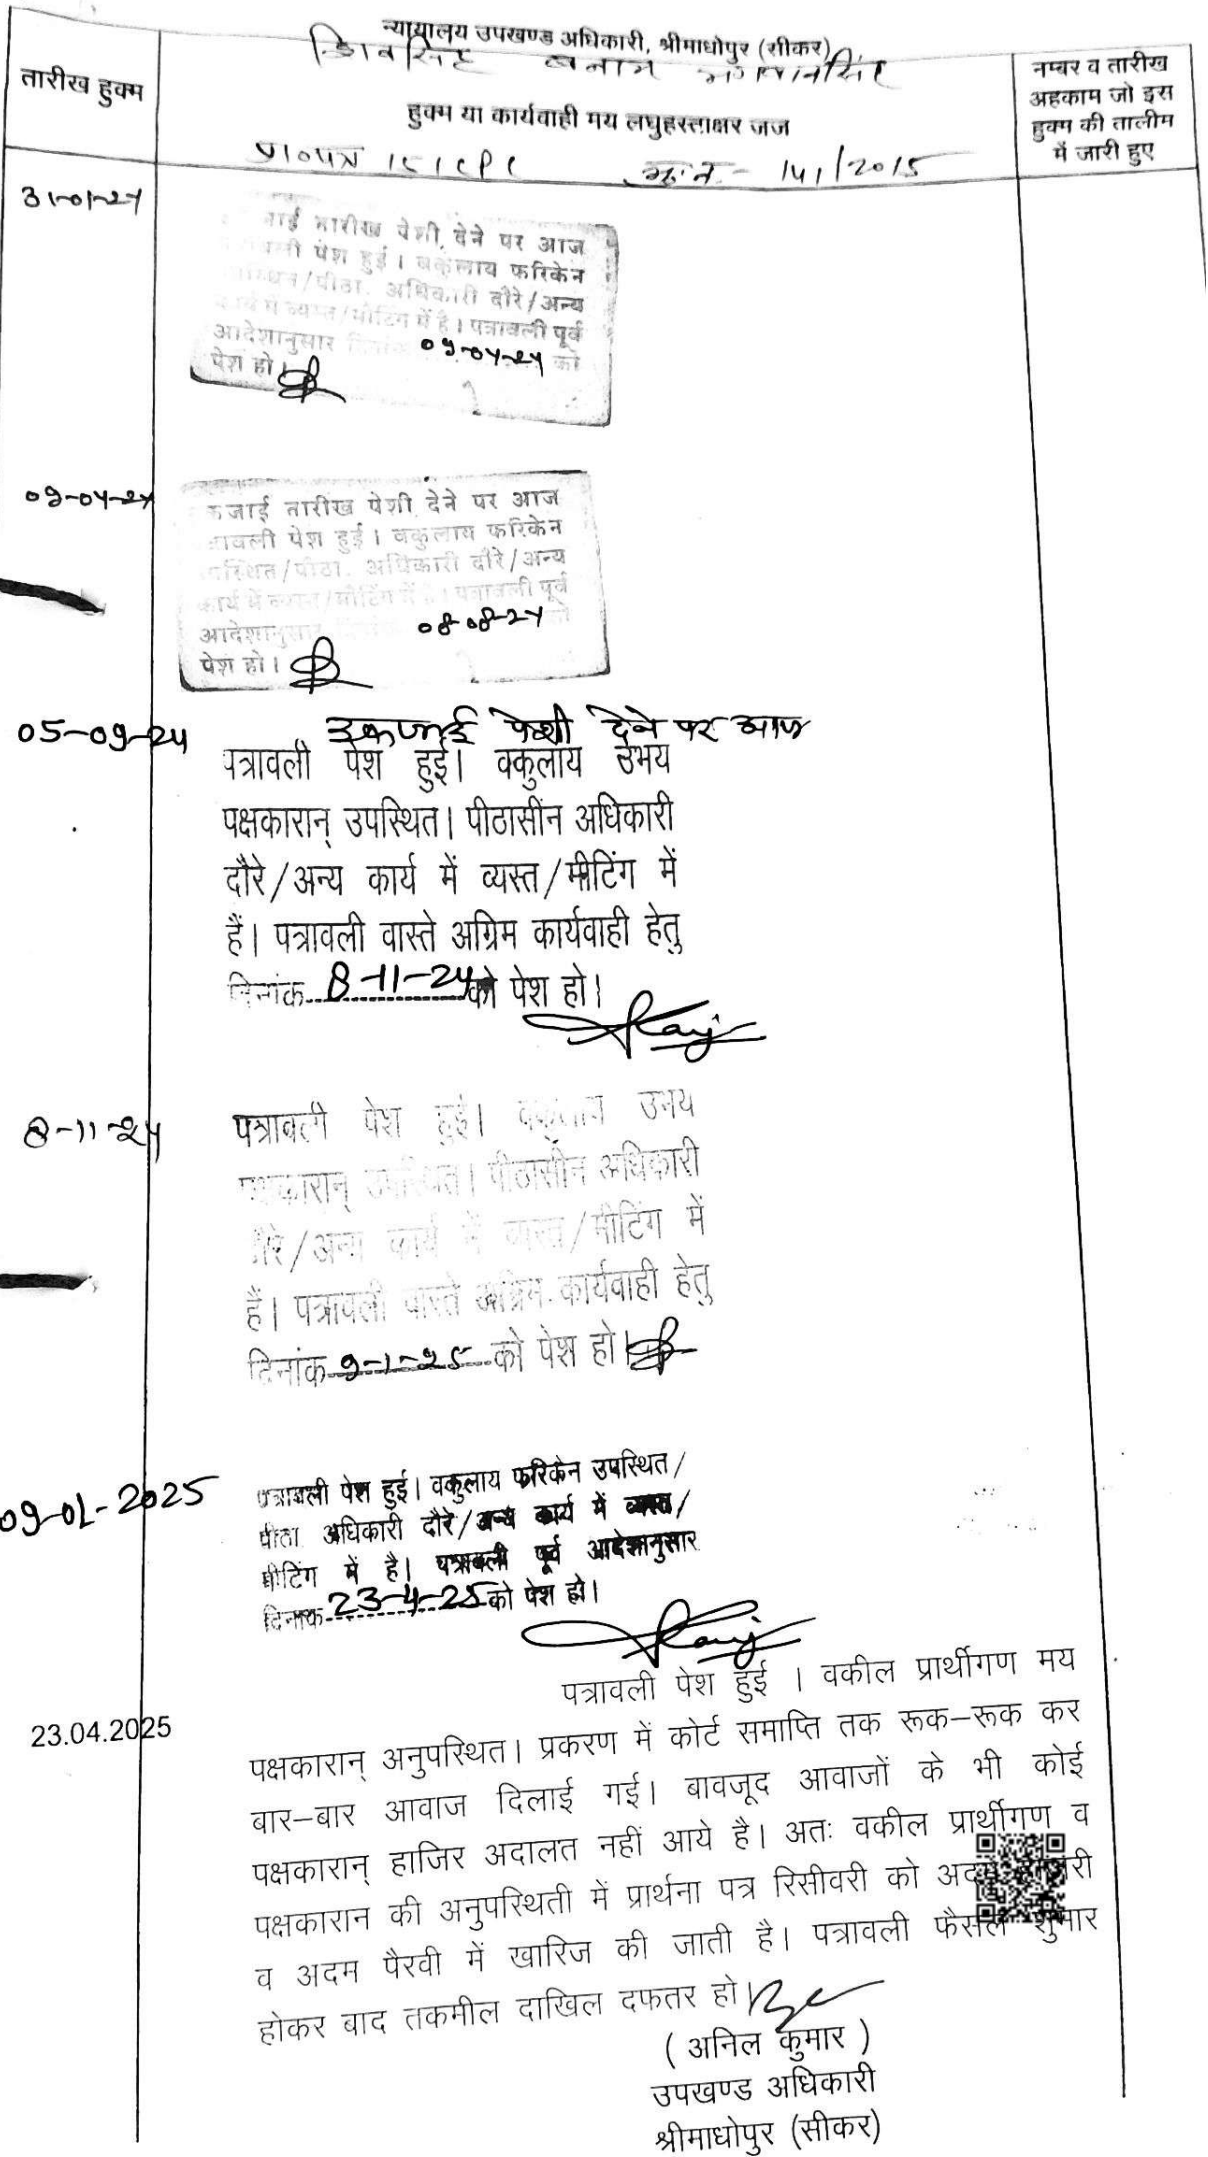 न्यायालय उपखण्ड अधिकारी, श्रीमाधोपुर (सीकर)
शिवसिंह बनाम भगवानसिंह
तारीख हुक्म
हुक्म या कार्यवाही मय लघुहस्ताक्षर जज
नम्बर व तारीख
अहकाम जो इस
हुक्म की तालीम
में जारी हुए
प्रा०पत्र 151 CPC मु.न.- 141/2015
31-01-24
तारीख पेशी देने पर आज
पेश हुई। वकुलाय फरिकेन
/पीठा. अधिकारी दौरे/अन्य
कार्य में व्यस्त/मीटिंग में है। पत्रावली पूर्व
आदेशानुसार दिनांक 09-04-24 को
पेश हो।
09-04-24
तारीख पेशी देने पर आज
पेश हुई। वकुलाय फरिकेन
उपस्थित/पीठा. अधिकारी दौरे/अन्य
कार्य में व्यस्त/मीटिंग में है। पत्रावली पूर्व
आदेशानुसार दिनांक 08-08-24 को
पेश हो।
05-09-24 उकजाई पेशी देने पर आज
पत्रावली पेश हुई। वकुलाय उभय
पक्षकारान् उपस्थित। पीठासीन अधिकारी
दौरे/अन्य कार्य में व्यस्त/मीटिंग में
हैं। पत्रावली वास्ते अग्रिम कार्यवाही हेतु
दिनांक 8-11-24 को पेश हो।
8-11-24
पत्रावली पेश हुई। वकुलाय उभय
पक्षकारान् उपस्थित। पीठासीन अधिकारी
दौरे/अन्य कार्य में व्यस्त/मीटिंग में
हैं। पत्रावली वास्ते अग्रिम कार्यवाही हेतु
दिनांक 9-1-25 को पेश हो।
09-01-2025
पत्रावली पेश हुई। वकुलाय फरिकेन उपस्थित/
पीठा अधिकारी दौरे/अन्य कार्य में व्यस्त/
मीटिंग में है। पत्रावली पूर्व आदेशानुसार
दिनांक 23-4-25 को पेश हो।
23.04.2025
पत्रावली पेश हुई । वकील प्रार्थीगण मय
पक्षकारान् अनुपस्थित। प्रकरण में कोर्ट समाप्ति तक रूक–रूक कर
बार–बार आवाज दिलाई गई। बावजूद आवाजों के भी कोई
पक्षकारान् हाजिर अदालत नहीं आये है। अतः वकील प्रार्थीगण व
पक्षकारान की अनुपस्थिती में प्रार्थना पत्र रिसीवरी को अदम हाजरी
व अदम पैरवी में खारिज की जाती है। पत्रावली फैसल शुमार
होकर बाद तकमील दाखिल दफतर हो।
( अनिल कुमार )
उपखण्ड अधिकारी
श्रीमाधोपुर (सीकर)